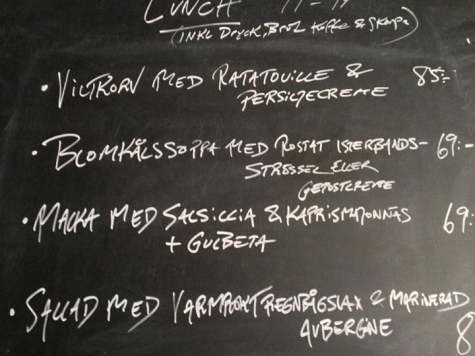 LUNCH 11-14
(INKL DRYCK, BRÖD, KAFFE & SKORPA)
• VILTKORV MED RATATOUILLE & 85:-
PERSILJECREME
• BLOMKÅLSSOPPA MED ROSTAT ISTERBANDS- 69:-
STRÖSSEL ELLER
GETOSTCREME
• MACKA MED SALSICCIA & KAPRISMAJONNÄS 69:
+ GULBETA
• SALLAD MED VARMRÖKT REGNBÅGSLAX & MARINERAD
AUBERGINE 8